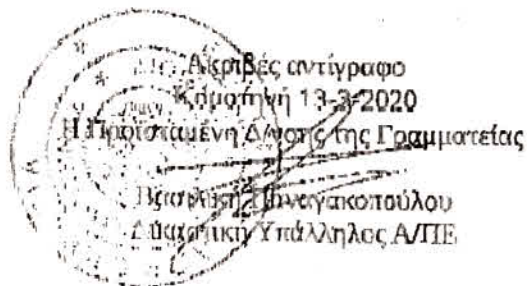 Ακριβές αντίγραφο
Κομοτηνή 13-3-2020
Η Προϊσταμένη Δ/νσης της Γραμματείας
Βασιλική Παναγακοπούλου
Διοικητική Υπάλληλος Α/ΠΕ